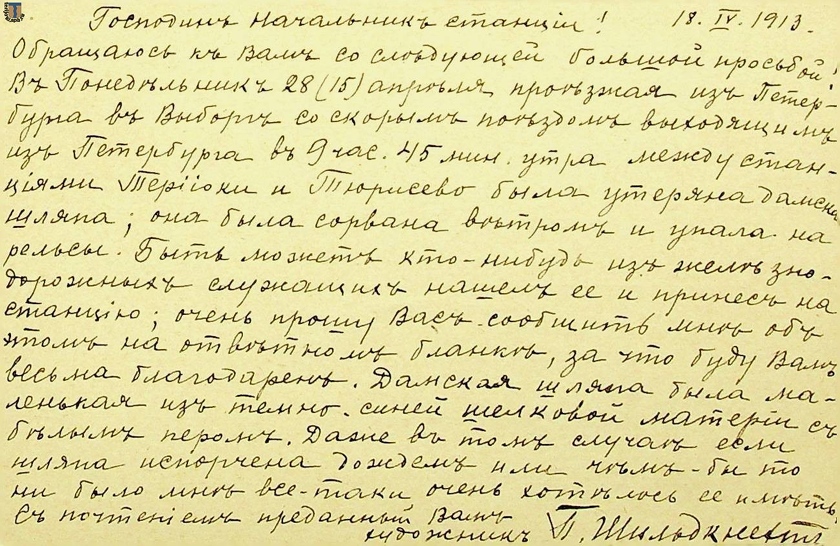 Господинъ Начальникъ станціи! 18. IV. 1913.
Обращаюсь къ Вамъ со слѣдующей большой просьбой!
Въ Понедѣльникъ 28 (15) апрѣля, проѣзжая изъ Петер-
бурга въ Выборгъ со скорымъ поѣздомъ выходящимъ
изъ Петербурга въ 9 час. 45 мин. утра между стан-
ціями Теріоки и Тюрисево была утеряна дамская
шляпа; она была сорвана вѣтромъ и упала на
рельсы. Быть можетъ кто-нибудь изъ желѣзно-
дорожныхъ служащихъ нашелъ ее и принесъ на
станцію; очень прошу Васъ сообщить мнѣ объ
этомъ на отвѣтномъ бланкѣ, за что буду Вамъ
весьма благодаренъ. Дамская шляпа была ма-
ленькая изъ темно-синей шелковой матеріи съ
бѣлымъ перомъ. Даже въ томъ случаѣ если
шляпа испорчена дождемъ или чѣмъ-бы то
ни было мнѣ все-таки очень хотѣлось ее имѣть.
Съ почтеніемъ преданный Вамъ
художникъ П. Шильдкнехтъ